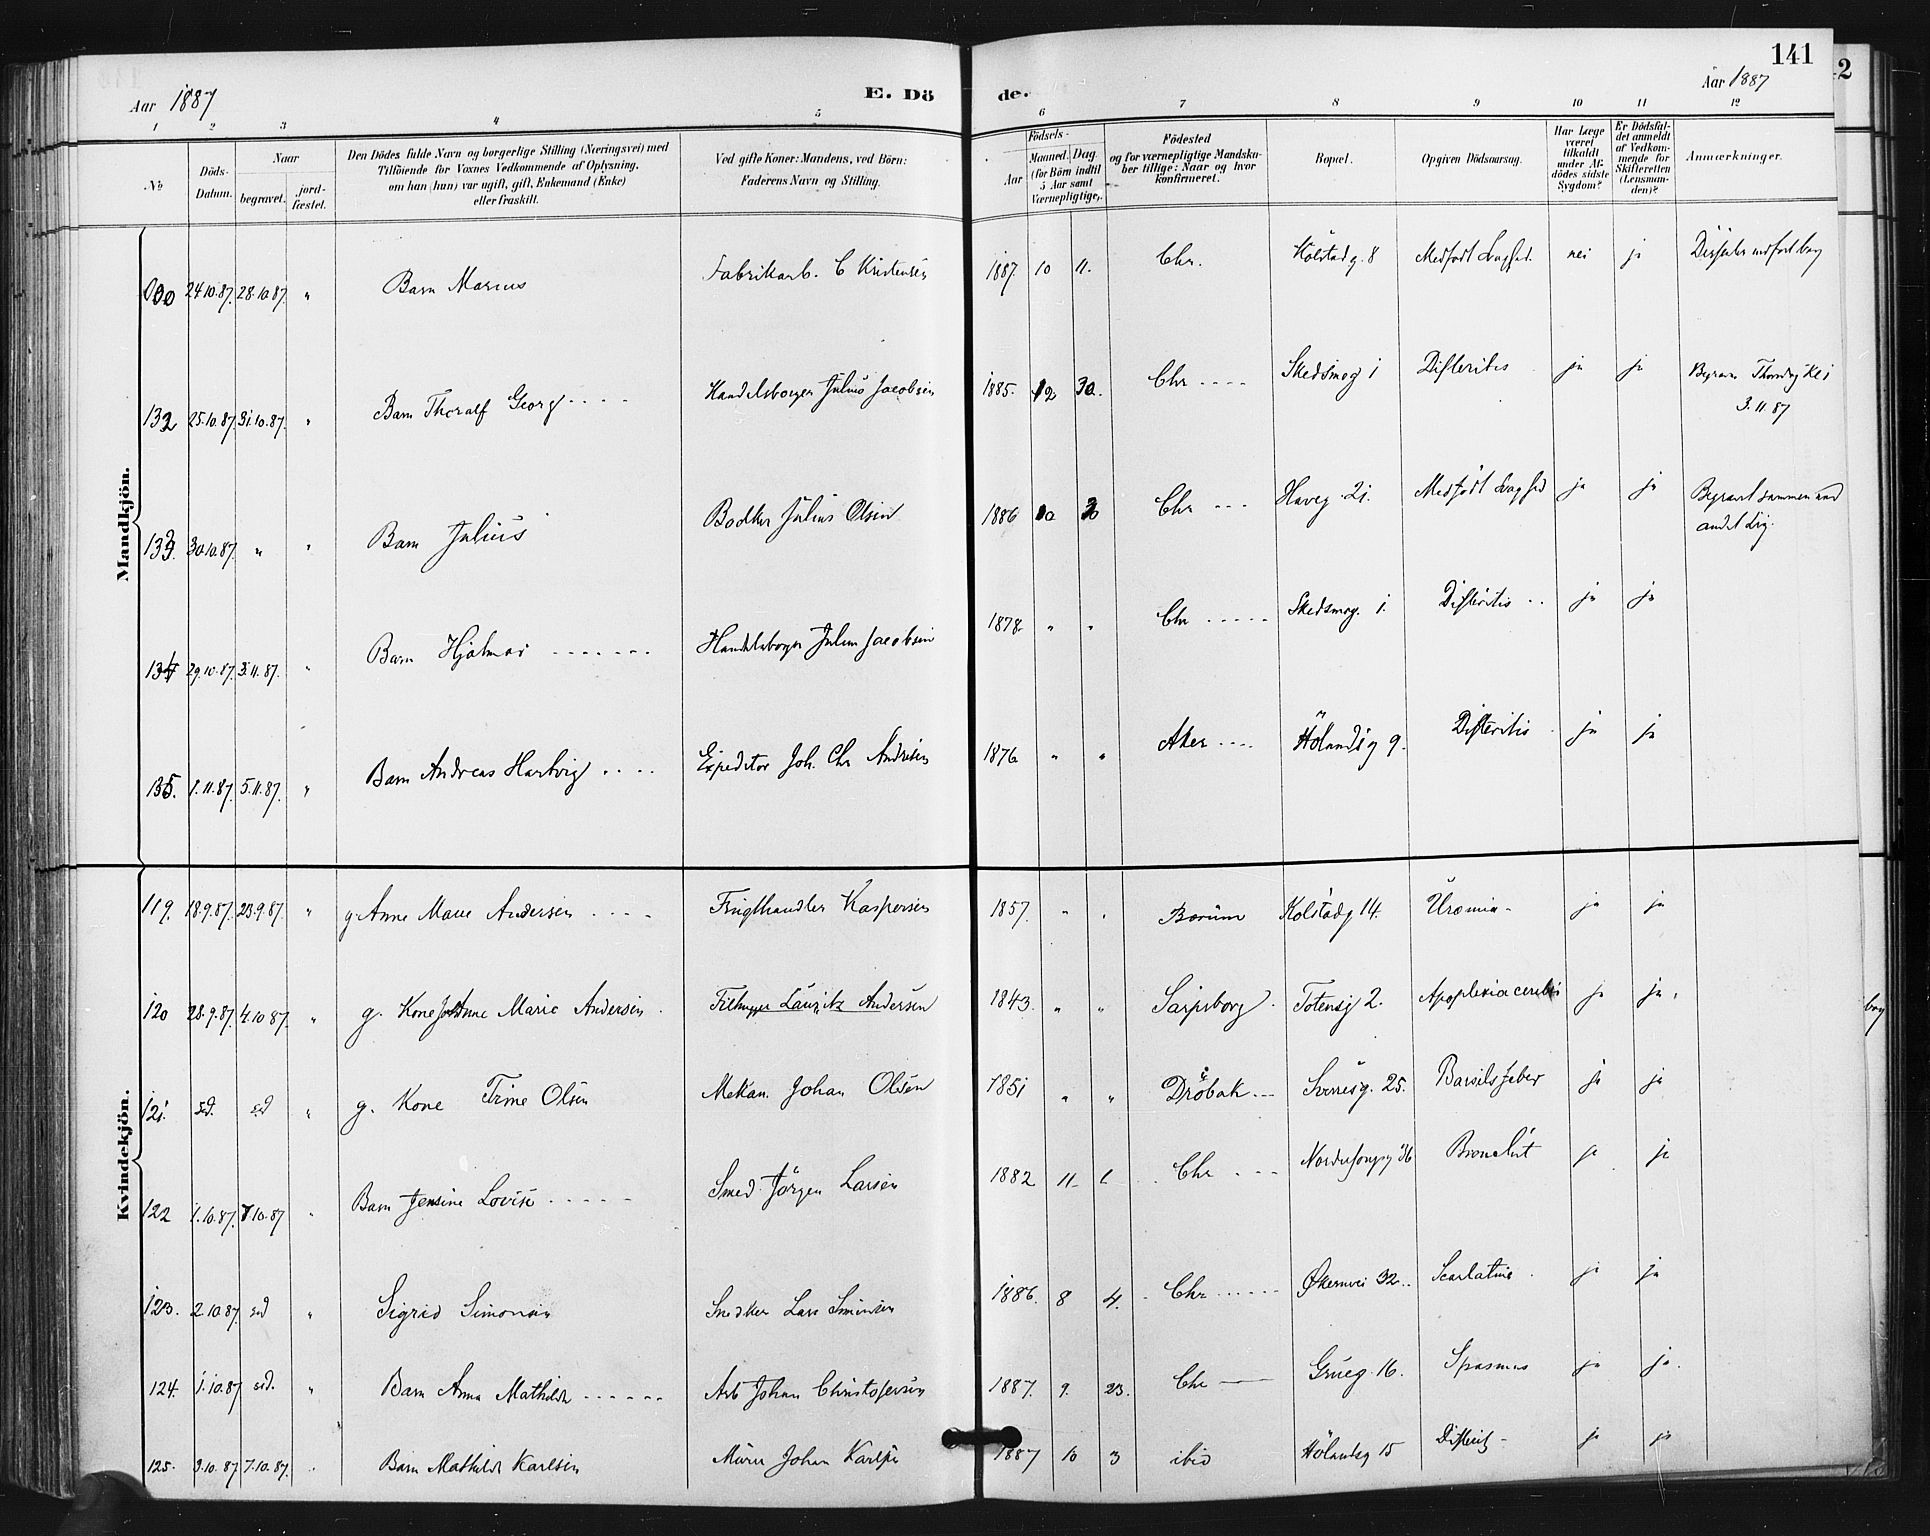 141
Aar 1887
E. Dö
de.
Aar 1887
1 2 3 4 5 6 7 8 9 10 11 12
No
Döds-Datum.
Naar
begravet.
jord-fæstet.
Den Dödes fulde Navn og borgerlige Stilling (Næringsvei) med
Tilföiende for Voxnes Vedkommende af Oplysning,
om han (hun) var ugift, gift, Enkemand (Enke)
eller fraskilt.
Ved gifte Koner: Mandens, ved Börn:
Faderens Navn og Stilling.
Födsels-
Aar
Maaned. Dag.
(for Börn indtil
5 Aar samt
Værnepligtige).
Födested
og for værnepligtige Mandska-
ber tillige: Naar og hvor
konfirmeret.
Bopæl.
Opgiven Dödsaarsag.
Har Læge
været
tilkaldt
under Af-
dödes sidste
Sygdom?
Er Dödsfal-
det anmeldt
af Vedkom-
mende for
Skifteretten
(Lensman-
den)?
Anmærkninger.
Mandkjön.
24.10.87. 28.10.87. " Barn Marius Fabrikarb. C Kristensen 1887. 10 11. Chr. Kolstadg. 8 Medfödt Svaghed. nei ja
132 25.10.87. 31.10.87. " Barn Thoralf Georg Handelsborger Julius Jacobsen 1885. 12 30. Chr Skedsmog 1 Difteritis ja ja
3.11.87
133. 30.10.87. " " Barn Julius Bödker Julius Olsen 1886 Chr Haveg. 21. Medfödt Svaghed ja ja Begravet sammen med
andet Lig.
134 29.10.87. 3.11.87. " Barn Hjalmar Handelsborger Julius Jacobsen 1878. " " Chr Skedsmog. 1. Difteritis ja ja
135. 1.11.87. 5.11.87. " Barn Andreas Hartvig Expeditör Joh. Chr Andresen 1876 " " Aker Hölandsg 9. Difteritis ja ja
Kvindekjön.
119. 18.9.87. 23.9.87. " g. Anne Marie Andersen Frugthandler Kaspersen 1857. " " Bærum Kolstadg 14. Uræmia ja ja
120 28.9.87. 4.10.87. " g. Kone Marie Andersen Lauritz Andersen 1843. " " Sarpsborg Totensg 2. Apoplexia cerebri ja ja
121. s.d. s.d " g. Kone Trine Olsen Mekan. Johan Olsen 1851 " " Dröbak Sverresg. 25. Barselsfeber ja ja
122 1.10.87. 7.10.87 " Barn Jensine Lovise Smed Jörgen Larsen 1882 11 1. Chr 36 Bronchit ja ja
123. 2.10.87. s.d " Sigrid Simonsen Snedker Lars Simonsen 1886. 8 4. Chr Økernvei 32 Scarlatina ja ja
124. 1.10.87 s.d. " Barn Anna Mathilde Arb Johan Christofersen 1887. 9. 23. Chr Grueg 16. Spasmus ja ja
125. 3.10.87 7.10.87. " Barn Mathilde Karlsen Murer Johan Karlsen 1887 10 3 ibid Hölandsg 15 Difterit ja ja